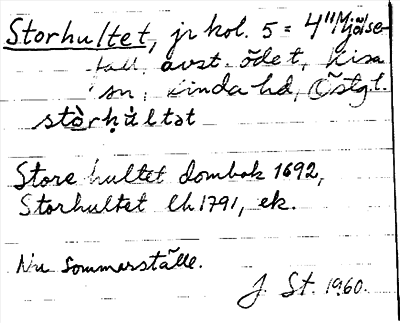 Storhultet, jr kol. 5 = 4" Mjölse-
avst. ödet, Kisa
sn, Kinda hd, Östgt.
stòrhùltət
Store hultet dombok 1692,
Storhultet lh 1791, ek.
Nu Sommarställe.
J. St. 1960.